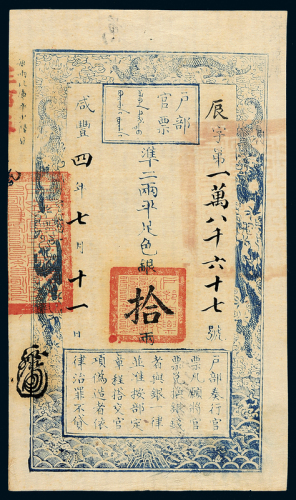 戶部
官票
辰字第一萬八千六十七號
準二兩平足色銀拾兩
咸豐四年七月十一日
戶部奏行官
票凡願將官
票兌換銀錢
者與銀一律
並准按部定
章程搭交官
項偽造者依
律治罪不貸